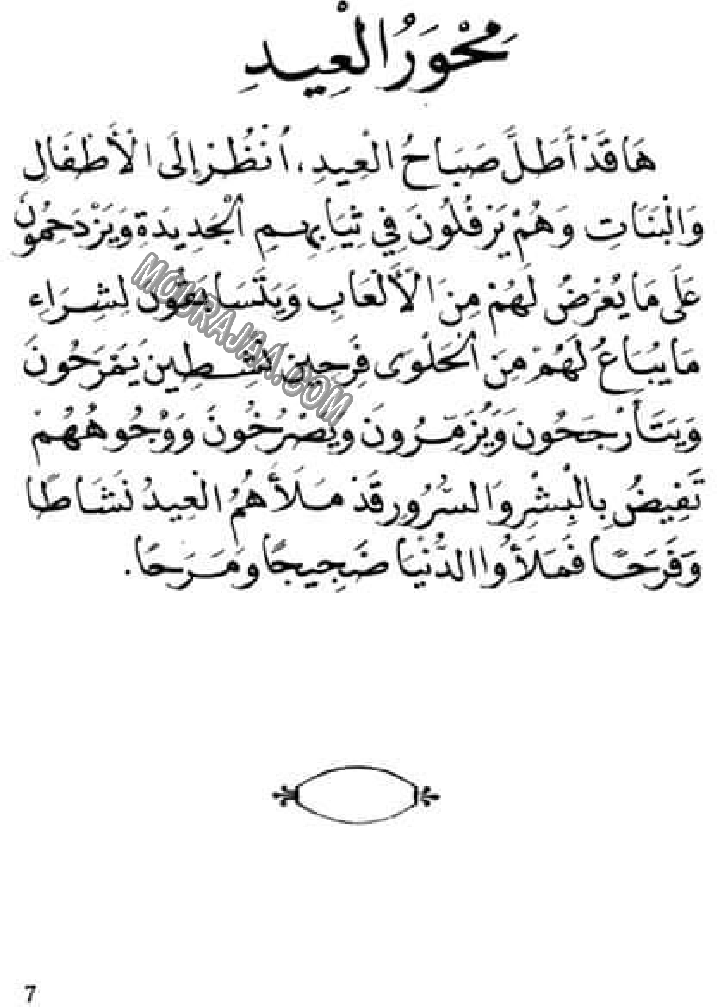 مَحْوَرُ الْعِيدِ
هَا قَدْ أَطَلَّ صَبَاحُ الْعِيدِ، اُنْظُرْ إِلَى الْأَطْفَالِ
وَالْبَنَاتِ وَهُمْ يَرْفُلُونَ فِي ثِيَابِهِمِ الْجَدِيدَةِ وَيَزْدَحِمُونَ
عَلَى مَا يُعْرَضُ لَهُمْ مِنَ الْأَلْعَابِ وَيَتَسَابَقُونَ لِشِرَاءِ
مَا يُبَاعُ لَهُمْ مِنَ الْحَلْوَى فَرِحِينَ نَشِطِينَ يَمْرَحُونَ
وَيَتَأَرْجَحُونَ وَيُزَمِّرُونَ وَيَصْرُخُونَ وَوُجُوهُهُمْ
تَفِيضُ بِالْبِشْرِ وَالسُّرُورِ قَدْ مَلَأَهُمُ الْعِيدُ نَشَاطًا
وَفَرَحًا فَمَلَأُوا الدُّنْيَا ضَجِيجًا وَمَرَحًا.
MOURAJAA.COM
7